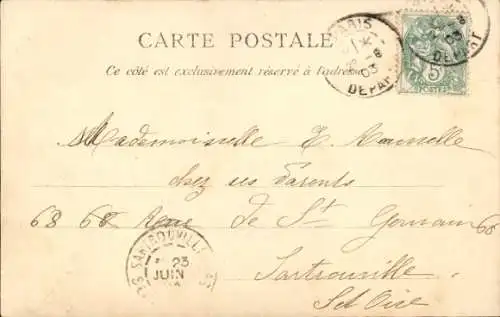 CARTE POSTALE
Ce côté est exclusivement réservé à l'adresse
PARIS
8
03
DEPART
DEPART
5
POSTES
Mademoiselle E.
chez ses Parents
68 68 Rue de St Germain 68
Sartrouville
S et Oise
SARTROUVILLE
23
JUIN